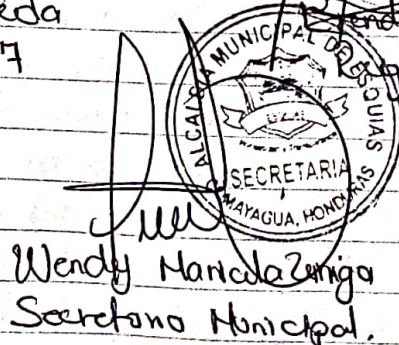 eda
7
ALCALDIA MUNICIPAL DE ESQUIAS
SECRETARIA
MAYAGUA, HONDURAS
Wendy Maricela Zuniga
Secretaria Municipal.